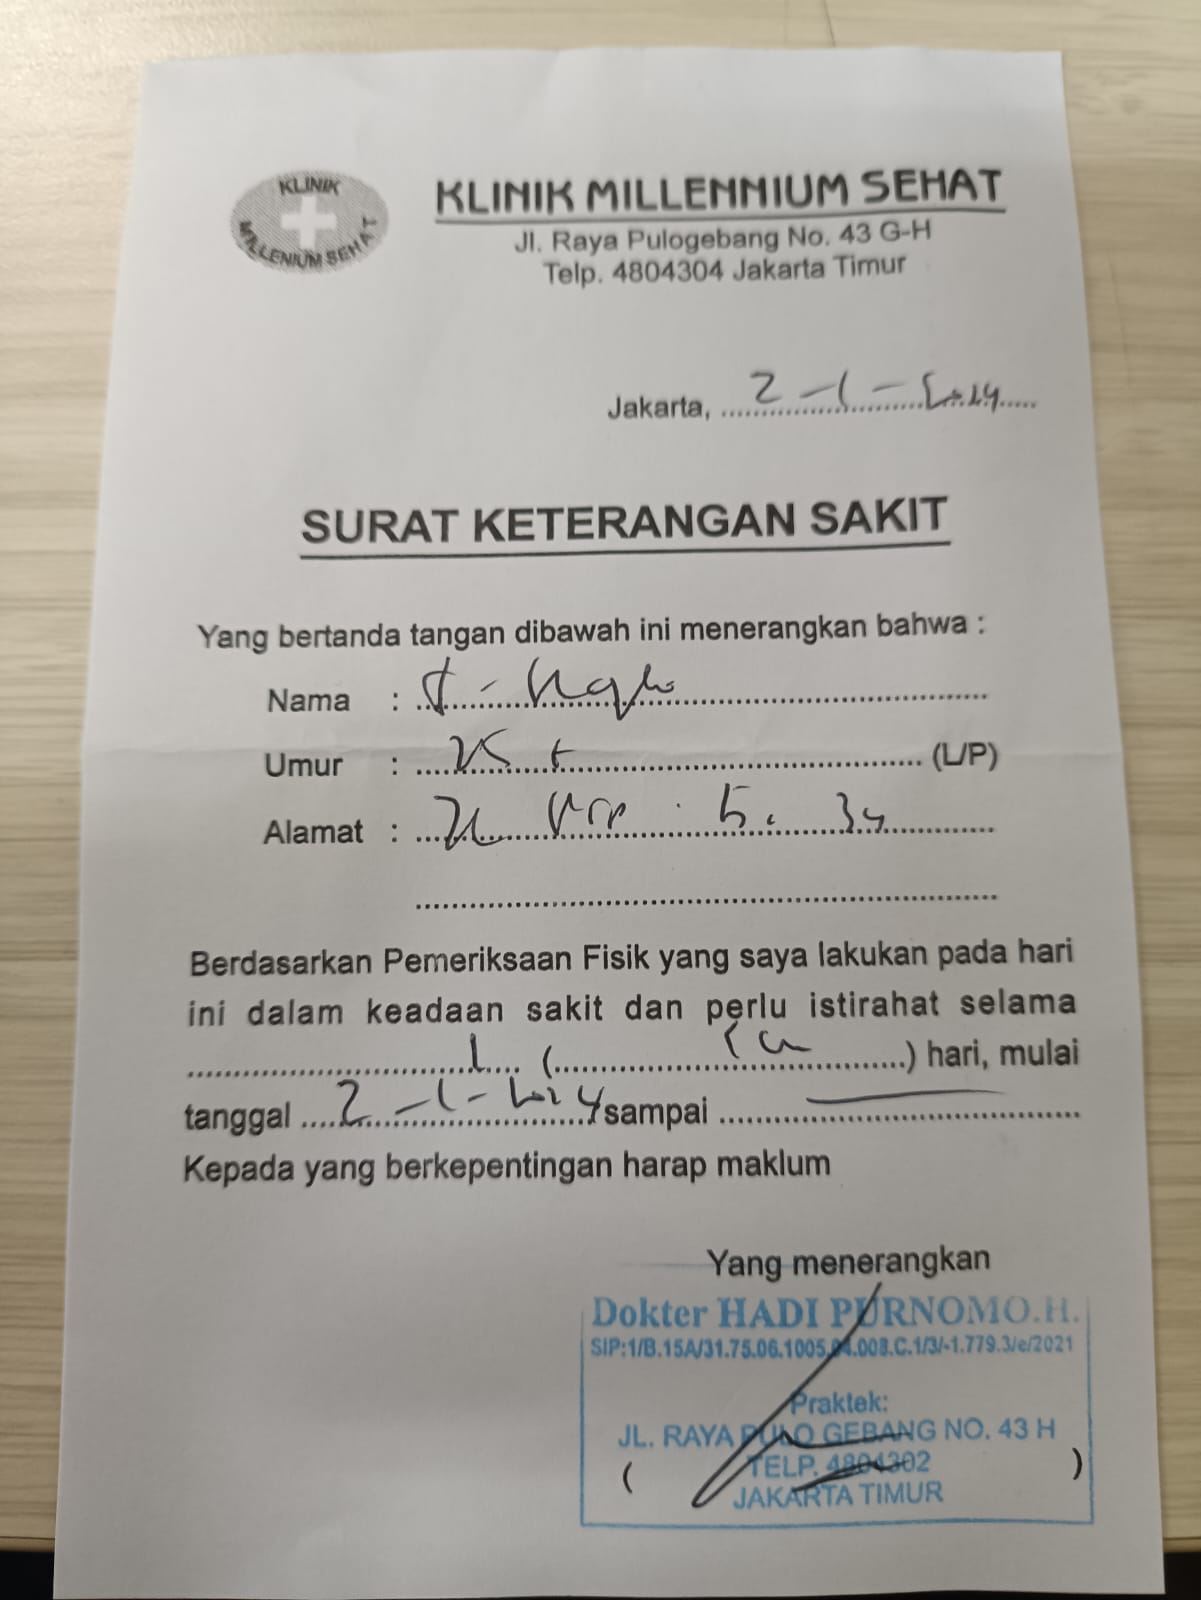 KLINIK
MILLENIUM SEHAT
KLINIK MILLENNIUM SEHAT
Jl. Raya Pulogebang No. 43 G-H
Telp. 4804304 Jakarta Timur
Jakarta, 2 - 1 - 2024
SURAT KETERANGAN SAKIT
Yang bertanda tangan dibawah ini menerangkan bahwa :
Nama :
Umur : (L/P)
Alamat :
Berdasarkan Pemeriksaan Fisik yang saya lakukan pada hari
ini dalam keadaan sakit dan perlu istirahat selama
1 ( ) hari, mulai
tanggal 2 - 1 - 2024 sampai
Kepada yang berkepentingan harap maklum
Yang menerangkan
Dokter HADI PURNOMO.H.
SIP:1/B.15A/31.75.06.1005.04.008.C.1/3/-1.779.3/e/2021
Praktek:
JL. RAYA PULO GEBANG NO. 43 H
TELP. 4804302
JAKARTA TIMUR
( )